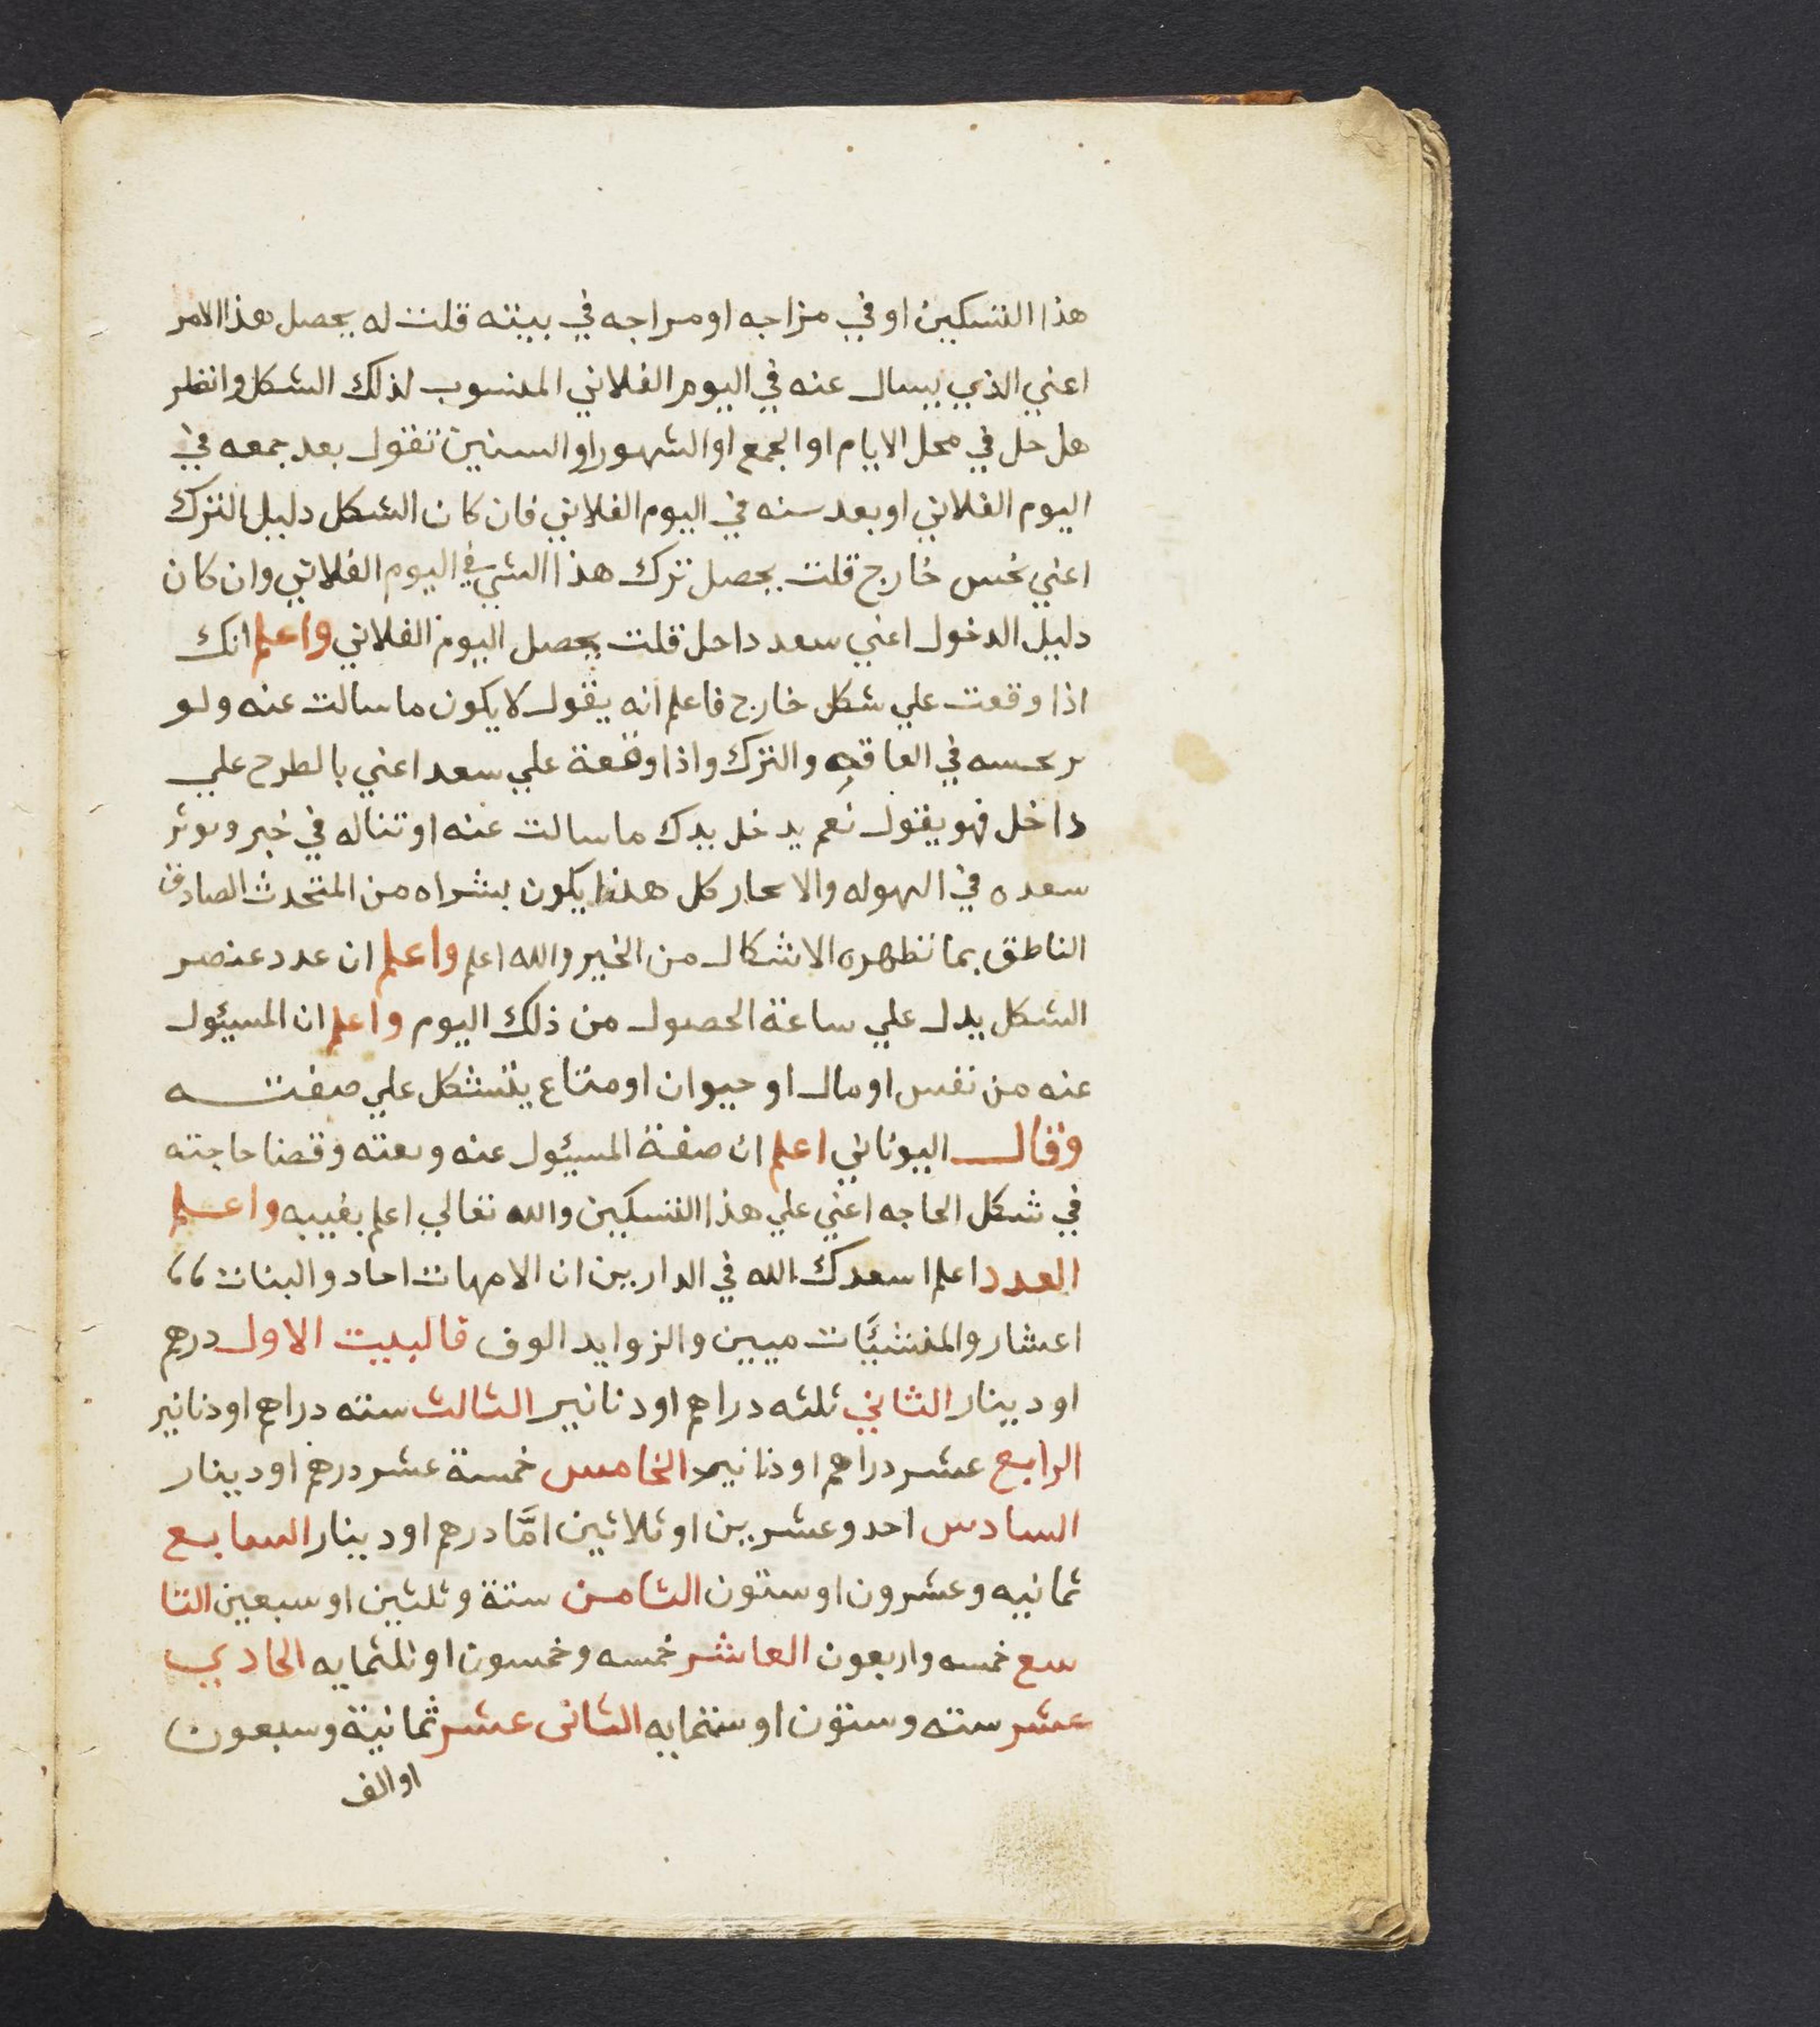 هذا التسكين او في مزاجه او مراجه في بيته قلت له يحصل هذا الامر
اعني الذي يسال عنه في اليوم الفلاني المنسوب لذلك الشكل وانظر
هل حل في محل الايام او الجمع او الشهور او السنين تقول بعد جمعه في
اليوم الفلاني او بعد سنه في اليوم الفلاني فان كان الشكل دليل الترك
اعني نحس خارج قلت يحصل ترك هذا الشي في اليوم الفلاني وان كان
دليل الدخول اعني سعد داخل قلت يحصل اليوم الفلاني واعلم انك
اذا وقعت علي شكل خارج فاعلم انه يقول لا يكون ما سالت عنه ولو
في العاقبه والترك واذا وقعة علي سعد اعني بالطرح علي
داخل فهو يقول نعم يدخل يدك ما سالت عنه او تناله في خير
سعده في كل هذا يكون بشراه من المتحدث الصادق
الناطق بما تظهره الاشكال من الخير والله اعلم واعلم ان عدد عنصر
الشكل يدل علي ساعة الحصول من ذلك اليوم واعلم ان المسئول
عنه من نفس او مال او حيوان او متاع يتشكل علي صفته
وقال اليوناني اعلم ان صفة المسئول عنه ونعته وقضا حاجته
في شكل الحاجه اعني علي هذا التسكين والله تعالي اعلم بغيبه واعلم
العدد اعلم اسعدك الله في الدارين ان الامهات احاد والبنات
اعشار والمنشئات ميين والزوايد الوف فالبيت الاول درهم
او دينار الثاني ثلثه دراهم او دنانير الثالث سته دراهم او دنانير
الرابع عشر دراهم او دنانير الخامس خمسة عشر درهم او دينار
السادس احد وعشرين او ثلاثين امَّا درهم او دينار السابع
ثمانيه وعشرون او ستون الثامن ستة وثلثين او سبعين التا
سع خمسه واربعون العاشر خمسه وخمسون او ثلثمايه الحادي
عشر سته وستون او ستمايه الثاني عشر ثمانية وسبعون
او الف